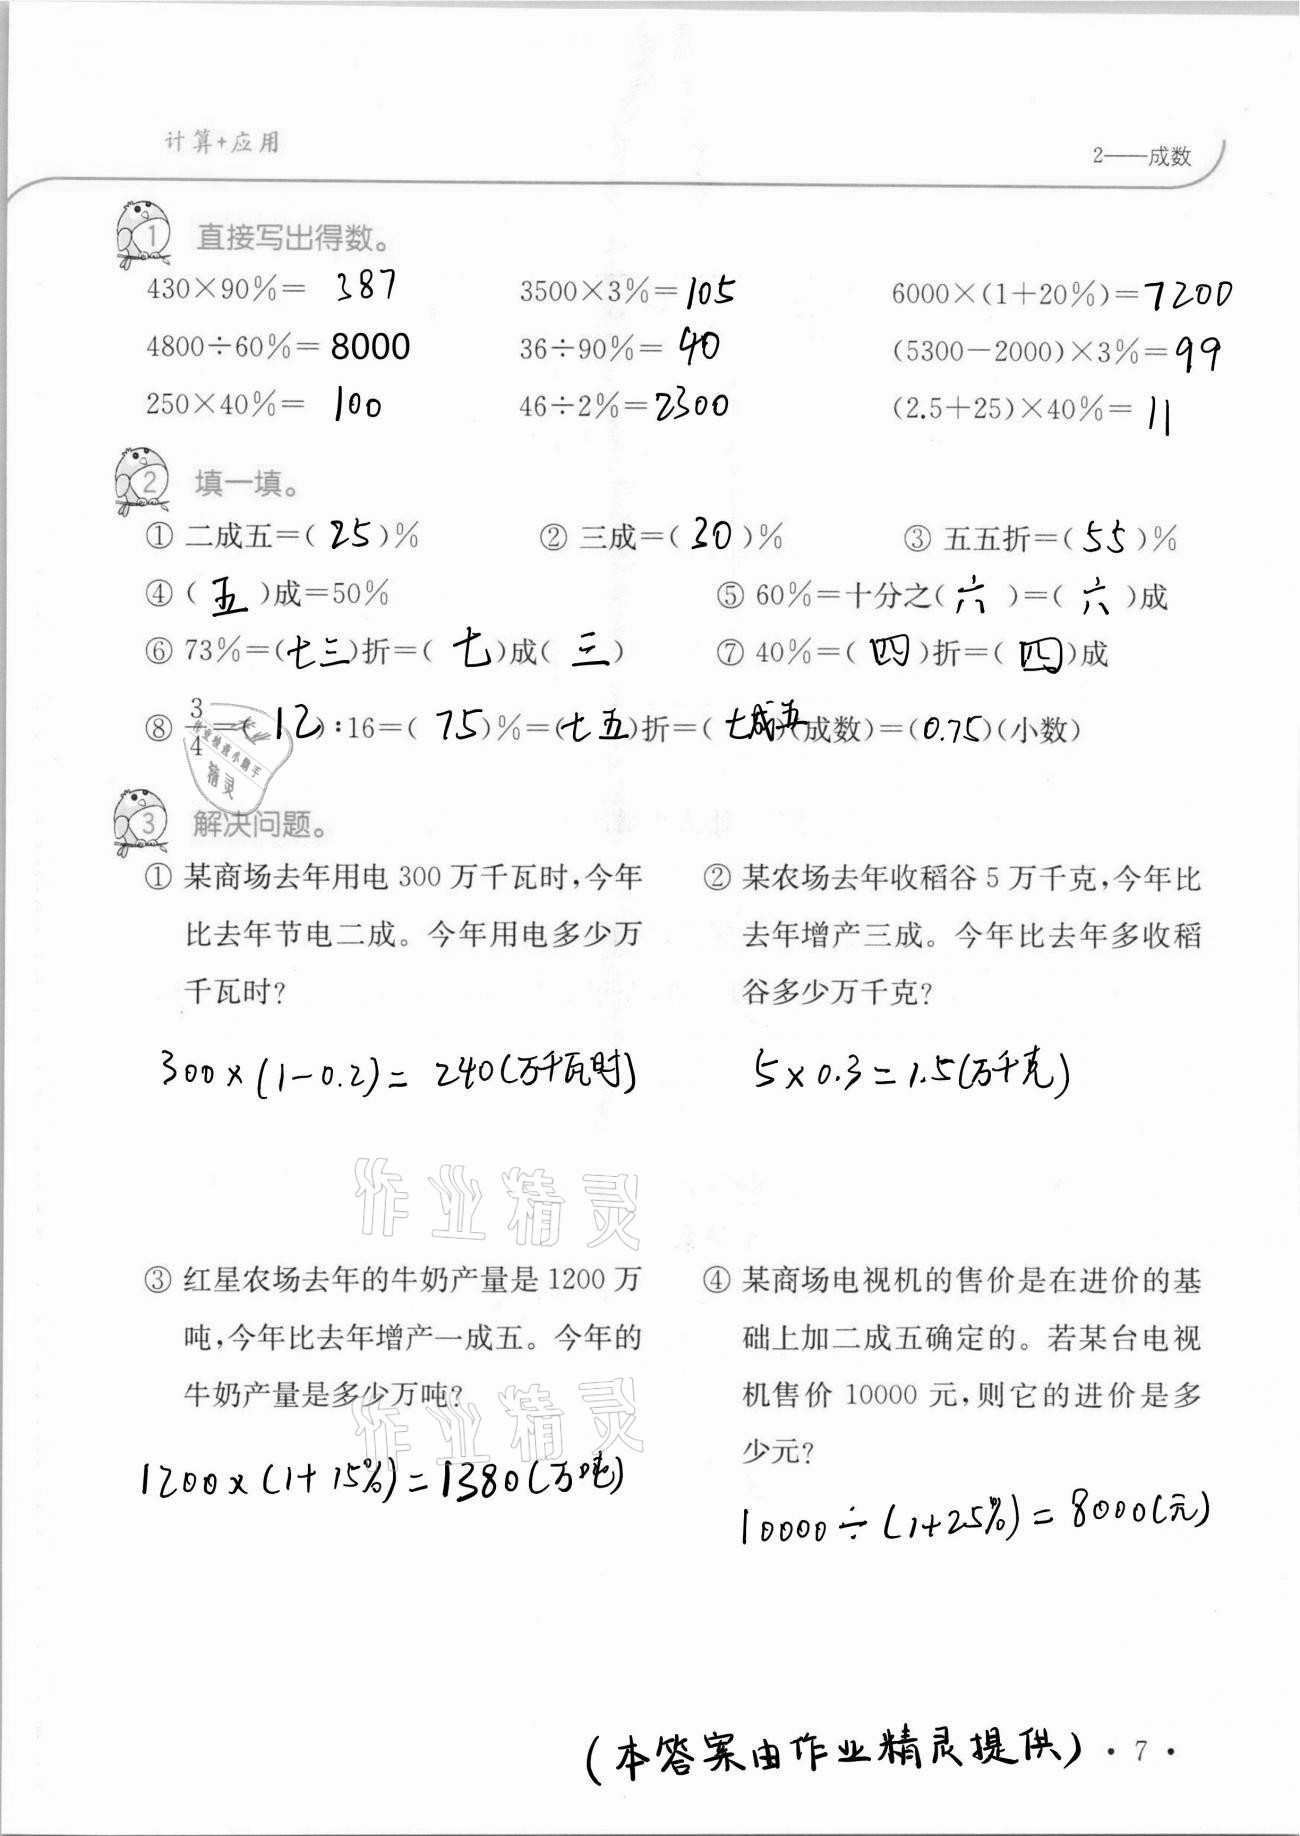 计算+应用
2——成数
1 直接写出得数。
430×90%= 387 3500×3%=105 6000×(1+20%)=7200
4800÷60%=8000 36÷90%= 40 (5300-2000)×3%=99
250×40%= 100 46÷2%=2300 (2.5+25)×40%= 11
2 填一填。
① 二成五=(25)% ② 三成=(30)% ③ 五五折=(55)%
④ (五)成=50% ⑤ 60%=十分之(六)=(六)成
⑥ 73%=(七三)折=(七)成(三) ⑦ 40%=(四)折=(四)成
⑧ 3/4=(12):16=(75)%=(七五)折=(七成五)(成数)=(0.75)(小数)
作业检查小助手
精灵
3 解决问题。
① 某商场去年用电 300 万千瓦时,今年
比去年节电二成。今年用电多少万
千瓦时?
300×(1-0.2)= 240(万千瓦时)
② 某农场去年收稻谷 5 万千克,今年比
去年增产三成。今年比去年多收稻
谷多少万千克?
5×0.3=1.5(万千克)
作业精灵
③ 红星农场去年的牛奶产量是 1200 万
吨,今年比去年增产一成五。今年的
牛奶产量是多少万吨?
作业精灵
1200×(1+15%)=1380(万吨)
④ 某商场电视机的售价是在进价的基
础上加二成五确定的。若某台电视
机售价 10000 元,则它的进价是多
少元?
10000÷(1+25%)=8000(元)
(本答案由作业精灵提供)
·7·